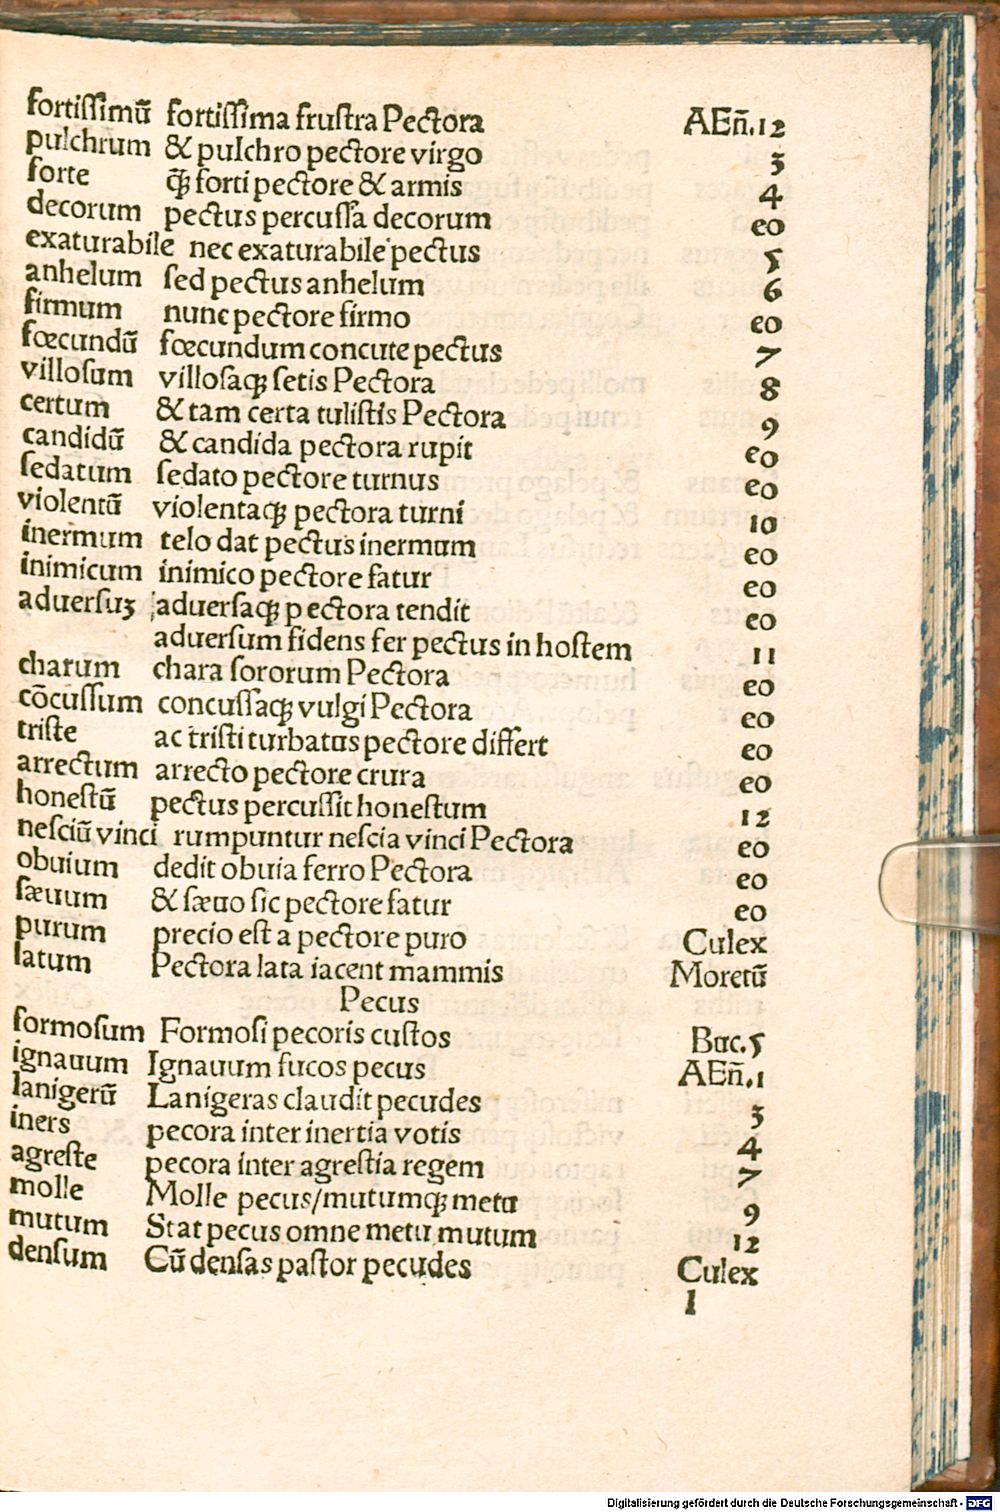 fortiſſimū fortiſſima fruſtra Pectora AEn̄.12
pulchrum & pulchro pectore virgo 3
forte q̄ forti pectore & armis 4
decorum pectus percuſſa decorum eo
exaturabile nec exaturabile pectus 5
anhelum ſed pectus anhelum 6
firmum nunc pectore firmo eo
fœcundū fœcundum concute pectus 7
villoſum villoſaqꝫ ſetis Pectora 8
certum & tam certa tuliſtis Pectora 9
candidū & candida pectora rupit eo
ſedatum ſedato pectore turnus eo
violentū violentaqꝫ pectora turni 10
inermum telo dat pectus inermum eo
inimicum inimico pectore fatur eo
aduerſuꝫ aduerſaqꝫ pectora tendit eo
aduerſum fidens fer pectus in hoſtem 11
charum chara ſororum Pectora eo
cōcuſſum concuſſaqꝫ vulgi Pectora eo
triſte ac triſti turbatus pectore differt eo
arrectum arrecto pectore crura eo
honeſtū pectus percuſſit honeſtum 12
neſciū vinci rumpuntur neſcia vinci Pectora eo
obuium dedit obuia ferro Pectora eo
ſæuum & ſæuo ſic pectore fatur eo
purum precio eſt a pectore puro Culex
latum Pectora lata iacent mammis Moretū
Pecus
formoſum Formoſi pecoris cuſtos Buc.5
ignauum Ignauum fucos pecus AEn̄.1
lanigerū Lanigeras claudit pecudes 3
iners pecora inter inertia votis 4
agreſte pecora inter agreſtia regem 7
molle Molle pecus/mutumqꝫ metu 9
mutum Stat pecus omne metu mutum 12
denſum Cū denſas paſtor pecudes Culex
l
Digitalisierung gefördert durch die Deutsche Forschungsgemeinschaft - DFG